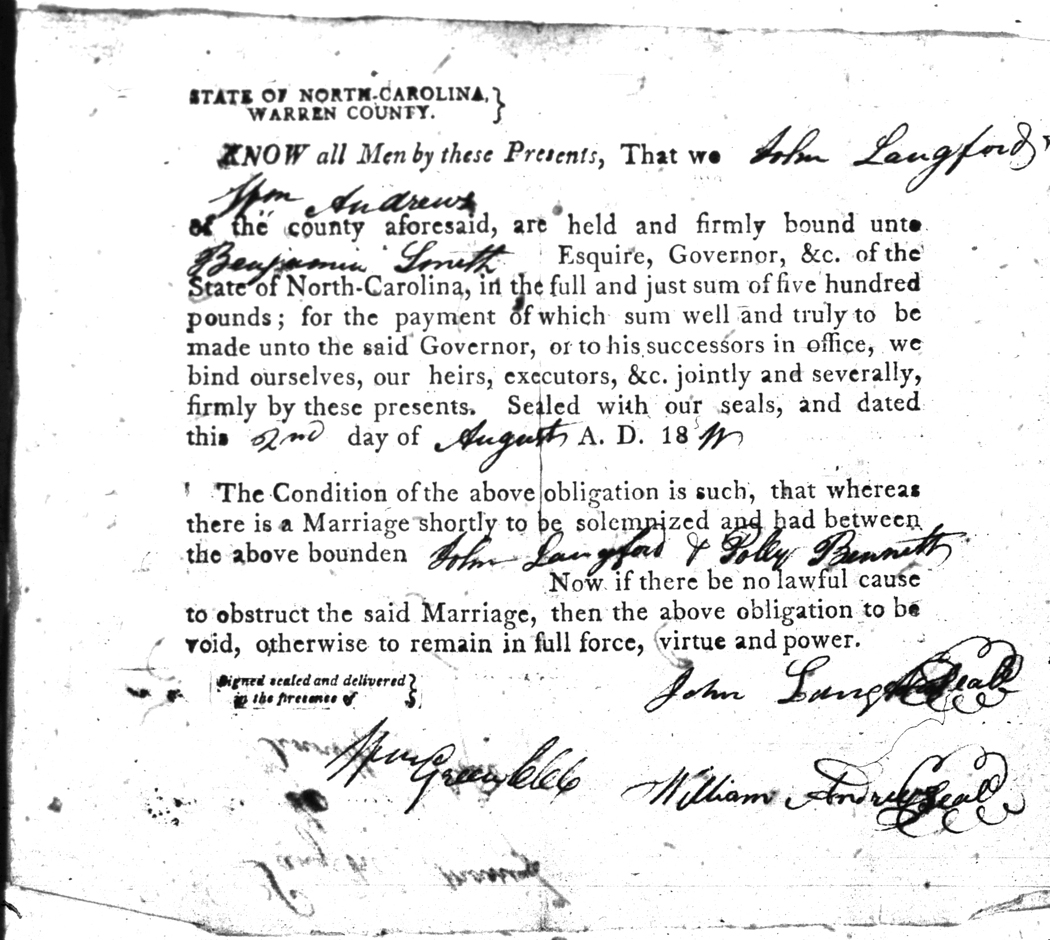 STATE OF NORTH-CAROLINA, }
WARREN COUNTY.
KNOW all Men by these Presents, That we John Langford,
Wm Andrews
of the county aforesaid, are held and firmly bound unto
Benjamin Smith Esquire, Governor, &c. of the
State of North-Carolina, in the full and just sum of five hundred
pounds; for the payment of which sum well and truly to be
made unto the said Governor, or to his successors in office, we
bind ourselves, our heirs, executors, &c. jointly and severally,
firmly by these presents. Sealed with our seals, and dated
this 2nd day of August A. D. 18
The Condition of the above obligation is such, that whereas
there is a Marriage shortly to be solemnized and had between
the above bounden John Langford & Polly Bennett
Now if there be no lawful cause
to obstruct the said Marriage, then the above obligation to be
void, otherwise to remain in full force, virtue and power.
Signed sealed and delivered }
in the presence of
John Langford Seal
Wm Green
William Andrews Seal